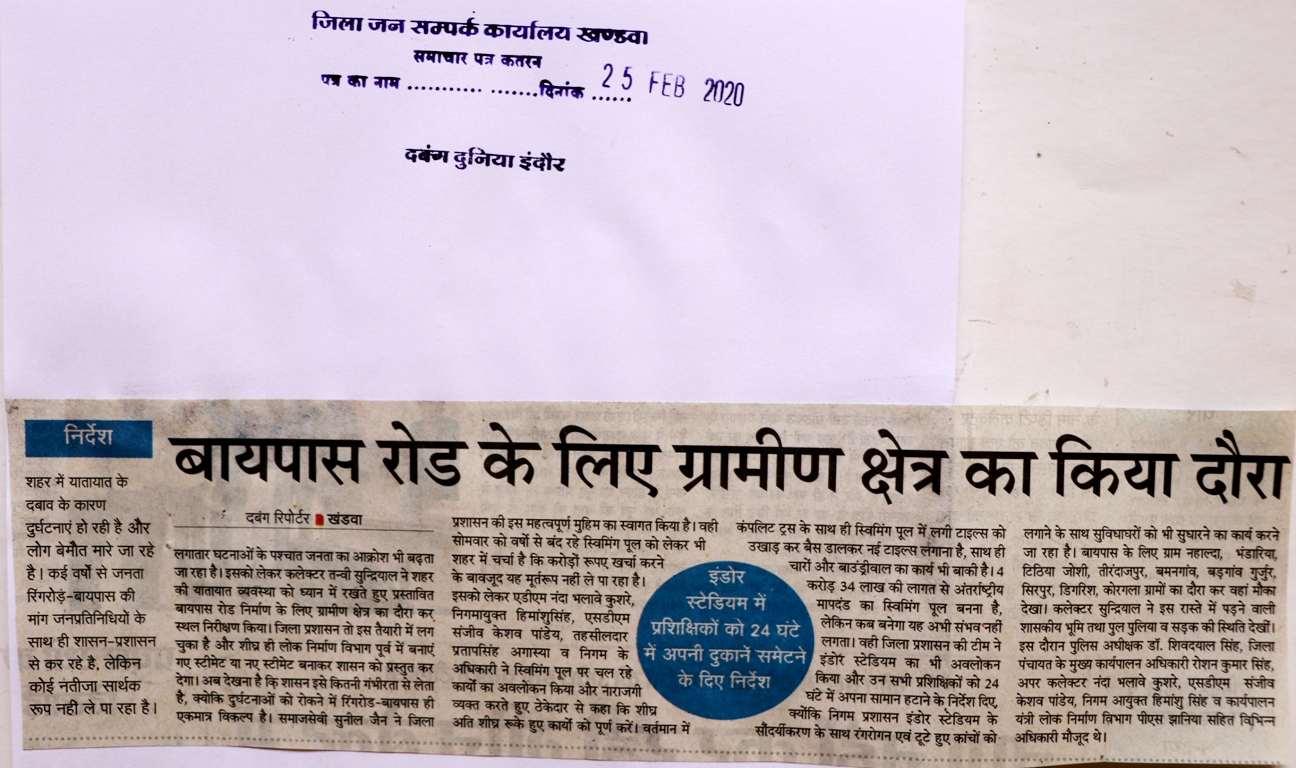 जिला जन सम्पर्क कार्यालय खण्डवा
समाचार पत्र कतरन
पत्र का नाम ........... .......दिनांक ......
25 FEB 2020
दबंग दुनिया इंदौर
निर्देश
शहर में यातायात के
दबाव के कारण
दुर्घटनाएं हो रही है और
लोग बेमौत मारे जा रहे
है। कई वर्षो से जनता
रिंगरोड़-बायपास की
मांग जनप्रतिनिधियों के
साथ ही शासन-प्रशासन
से कर रहे है, लेकिन
कोई नतीजा सार्थक
रूप नही ले पा रहा है।
बायपास रोड के लिए ग्रामीण क्षेत्र का किया दौरा
दबंग रिपोर्टर खंडवा
लगातार घटनाओं के पश्चात जनता का आक्रोश भी बढ़ता
जा रहा है। इसको लेकर कलेक्टर तन्वी सुन्द्रियाल ने शहर
की यातायात व्यवस्था को ध्यान में रखते हुए प्रस्तावित
बायपास रोड निर्माण के लिए ग्रामीण क्षेत्र का दौरा कर
स्थल निरीक्षण किया। जिला प्रशासन तो इस तैयारी में लग
चुका है और शीघ्र ही लोक निर्माण विभाग पूर्व में बनाएं
गए स्टीमेट या नए स्टीमेट बनाकर शासन को प्रस्तुत कर
देगा। अब देखना है कि शासन इसे कितनी गंभीरता से लेता
है, क्योकि दुर्घटनाओं को रोकने में रिंगरोड-बायपास ही
एकमात्र विकल्प है। समाजसेवी सुनील जैन ने जिला
प्रशासन की इस महत्वपूर्ण मुहिम का स्वागत किया है। वही
सोमवार को वर्षो से बंद रहे स्विमिंग पूल को लेकर भी
शहर में चर्चा है कि करोड़ो रूपए खर्चा करने
के बावजूद यह मूर्तरूप नही ले पा रहा है।
इसको लेकर एडीएम नंदा भलावे कुशरे,
निगमायुक्त हिमांशुसिंह, एसडीएम
संजीव केशव पांडेय, तहसीलदार
प्रतापसिंह अगास्या व निगम के
अधिकारी ने स्विमिंग पूल पर चल रहे
कार्यो का अवलोकन किया और नाराजगी
व्यक्त करते हुए ठेकेदार से कहा कि शीघ्र
अति शीघ्र रूके हुए कार्यो को पूर्ण करें। वर्तमान में
इंडोर
स्टेडियम में
प्रशिक्षिकों को 24 घंटे
में अपनी दुकानें समेटने
के दिए निर्देश
कंपलिट ट्रस के साथ ही स्विमिंग पूल में लगी टाइल्स को
उखाड़ कर बैस डालकर नई टाइल्स लगाना है, साथ ही
चारों और बाउंड्रीवाल का कार्य भी बाकी है। 4
करोड़ 34 लाख की लागत से अंतर्राष्ट्रीय
मापदंड का स्विमिंग पूल बनना है,
लेकिन कब बनेगा यह अभी संभव नहीं
लगता। वही जिला प्रशासन की टीम ने
इंडोर स्टेडियम का भी अवलोकन
किया और उन सभी प्रशिक्षिकों को 24
घंटे में अपना सामान हटाने के निर्देश दिए,
क्योंकि निगम प्रशासन इंडोर स्टेडियम के
सौंदर्यीकरण के साथ रंगरोगन एवं टूटे हुए कांचों को
लगाने के साथ सुविधाघरों को भी सुधारने का कार्य करने
जा रहा है। बायपास के लिए ग्राम नहाल्दा, भंडारिया,
टिठिया जोशी, तीरंदाजपुर, बमनगांव, बड़गांव गुर्जुर,
सिरपुर, डिगरिश, कोरगला ग्रामों का दौरा कर वहां मौका
देखा। कलेक्टर सुन्द्रियाल ने इस रास्ते में पड़ने वाली
शासकीय भूमि तथा पुल पुलिया व सड़क की स्थिति देखी।
इस दौरान पुलिस अधीक्षक डॉ. शिवदयाल सिंह, जिला
पंचायत के मुख्य कार्यपालन अधिकारी रोशन कुमार सिंह,
अपर कलेक्टर नंदा भलावे कुशरे, एसडीएम संजीव
केशव पांडेय, निगम आयुक्त हिमांशु सिंह व कार्यपालन
यंत्री लोक निर्माण विभाग पीएस झानिया सहित विभिन्न
अधिकारी मौजूद थे।